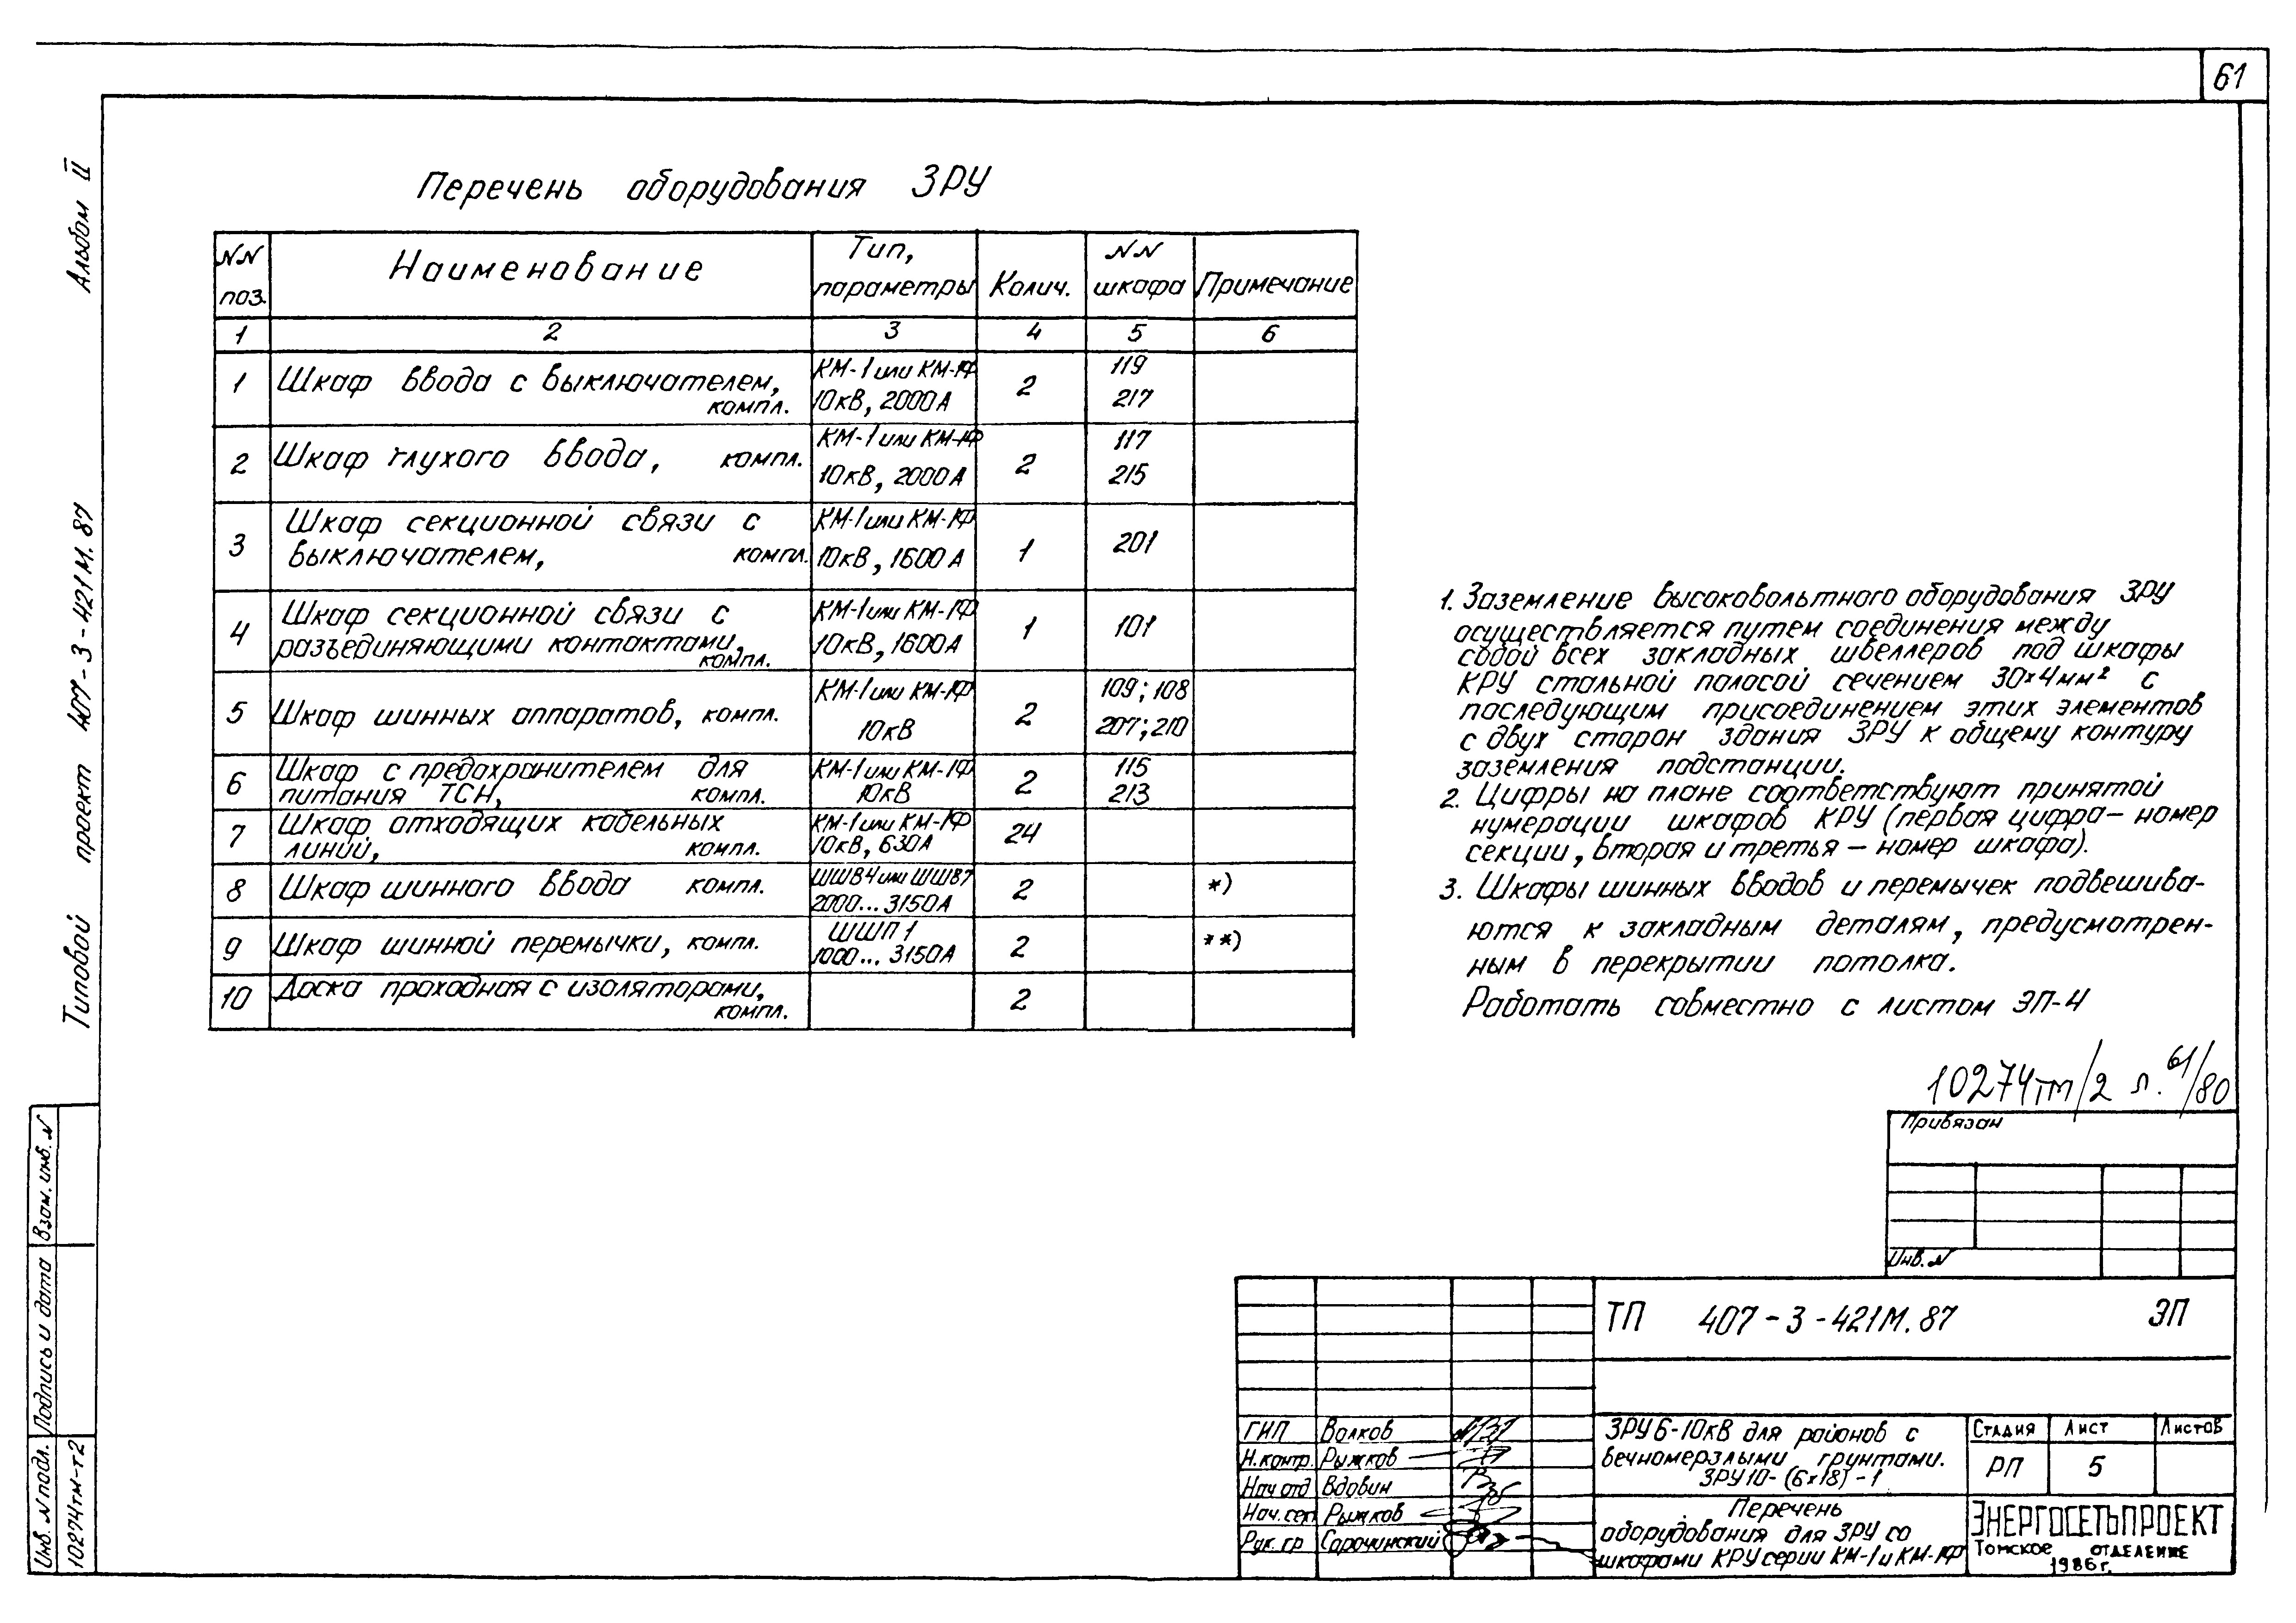 61
Альбом II
Типовой проект 407-3-421М.87
Перечень оборудования ЗРУ
NN поз. | Наименование | Тип, параметры | Колич. | NN шкафа | Примечание
1 | 2 | 3 | 4 | 5 | 6
1 | Шкаф ввода с выключателем, компл. | КМ-1 или КМ-1Ф 10кВ, 2000А | 2 | 119 217
2 | Шкаф глухого ввода, компл. | КМ-1 или КМ-1Ф 10кВ, 2000А | 2 | 117 215
3 | Шкаф секционной связи с выключателем, компл. | КМ-1 или КМ-1Ф 10кВ, 1600А | 1 | 201
4 | Шкаф секционной связи с разъединяющими контактами, компл. | КМ-1 или КМ-1Ф 10кВ, 1600А | 1 | 101
5 | Шкаф шинных аппаратов, компл. | КМ-1 или КМ-1Ф 10кВ | 2 | 109; 108 207; 210
6 | Шкаф с предохранителем для питания ТСН, компл. | КМ-1 или КМ-1Ф 10кВ | 2 | 115 213
7 | Шкаф отходящих кабельных линий, компл. | КМ-1 или КМ-1Ф 10кВ, 630А | 24
8 | Шкаф шинного ввода компл. | ШШВ4 или ШШВ7 2000...3150А | 2 | *)
9 | Шкаф шинной перемычки, компл. | ШШП1 1000...3150А | 2 | **)
10 | Доска проходная с изоляторами, компл. | 2
1. Заземление высоковольтного оборудования ЗРУ
осуществляется путем соединения между
собой всех закладных швеллеров под шкафы
КРУ стальной полосой сечением 30×4мм² с
последующим присоединением этих элементов
с двух сторон здания ЗРУ к общему контуру
заземления подстанции.
2. Цифры на плане соответствуют принятой
нумерации шкафов КРУ (первая цифра - номер
секции, вторая и третья - номер шкафа).
3. Шкафы шинных вводов и перемычек подвешива-
ются к закладным деталям, предусмотрен-
ным в перекрытии потолка.
Работать совместно с листом ЭП-4
10274тм/2 л. 61/80
Привязан
Инв. N
ТП 407-3-421М.87 ЭП
ГИП Волков
Н.контр. Рыжков
Нач отд Вдовин
Нач. сек Рыжков
Рук. гр Сорочинский
ЗРУ 6-10кВ для районов с
вечномерзлыми грунтами.
ЗРУ10-(6×18)-1
Стадия Лист Листов
РП 5
Перечень
оборудования для ЗРУ со
шкафами КРУ серии КМ-1 и КМ-1Ф
ЭНЕРГОСЕТЬПРОЕКТ
Томское отделение
1986г.
Взам. инв. N
Подпись и дата
Инв. N подл.
10274тм-т2